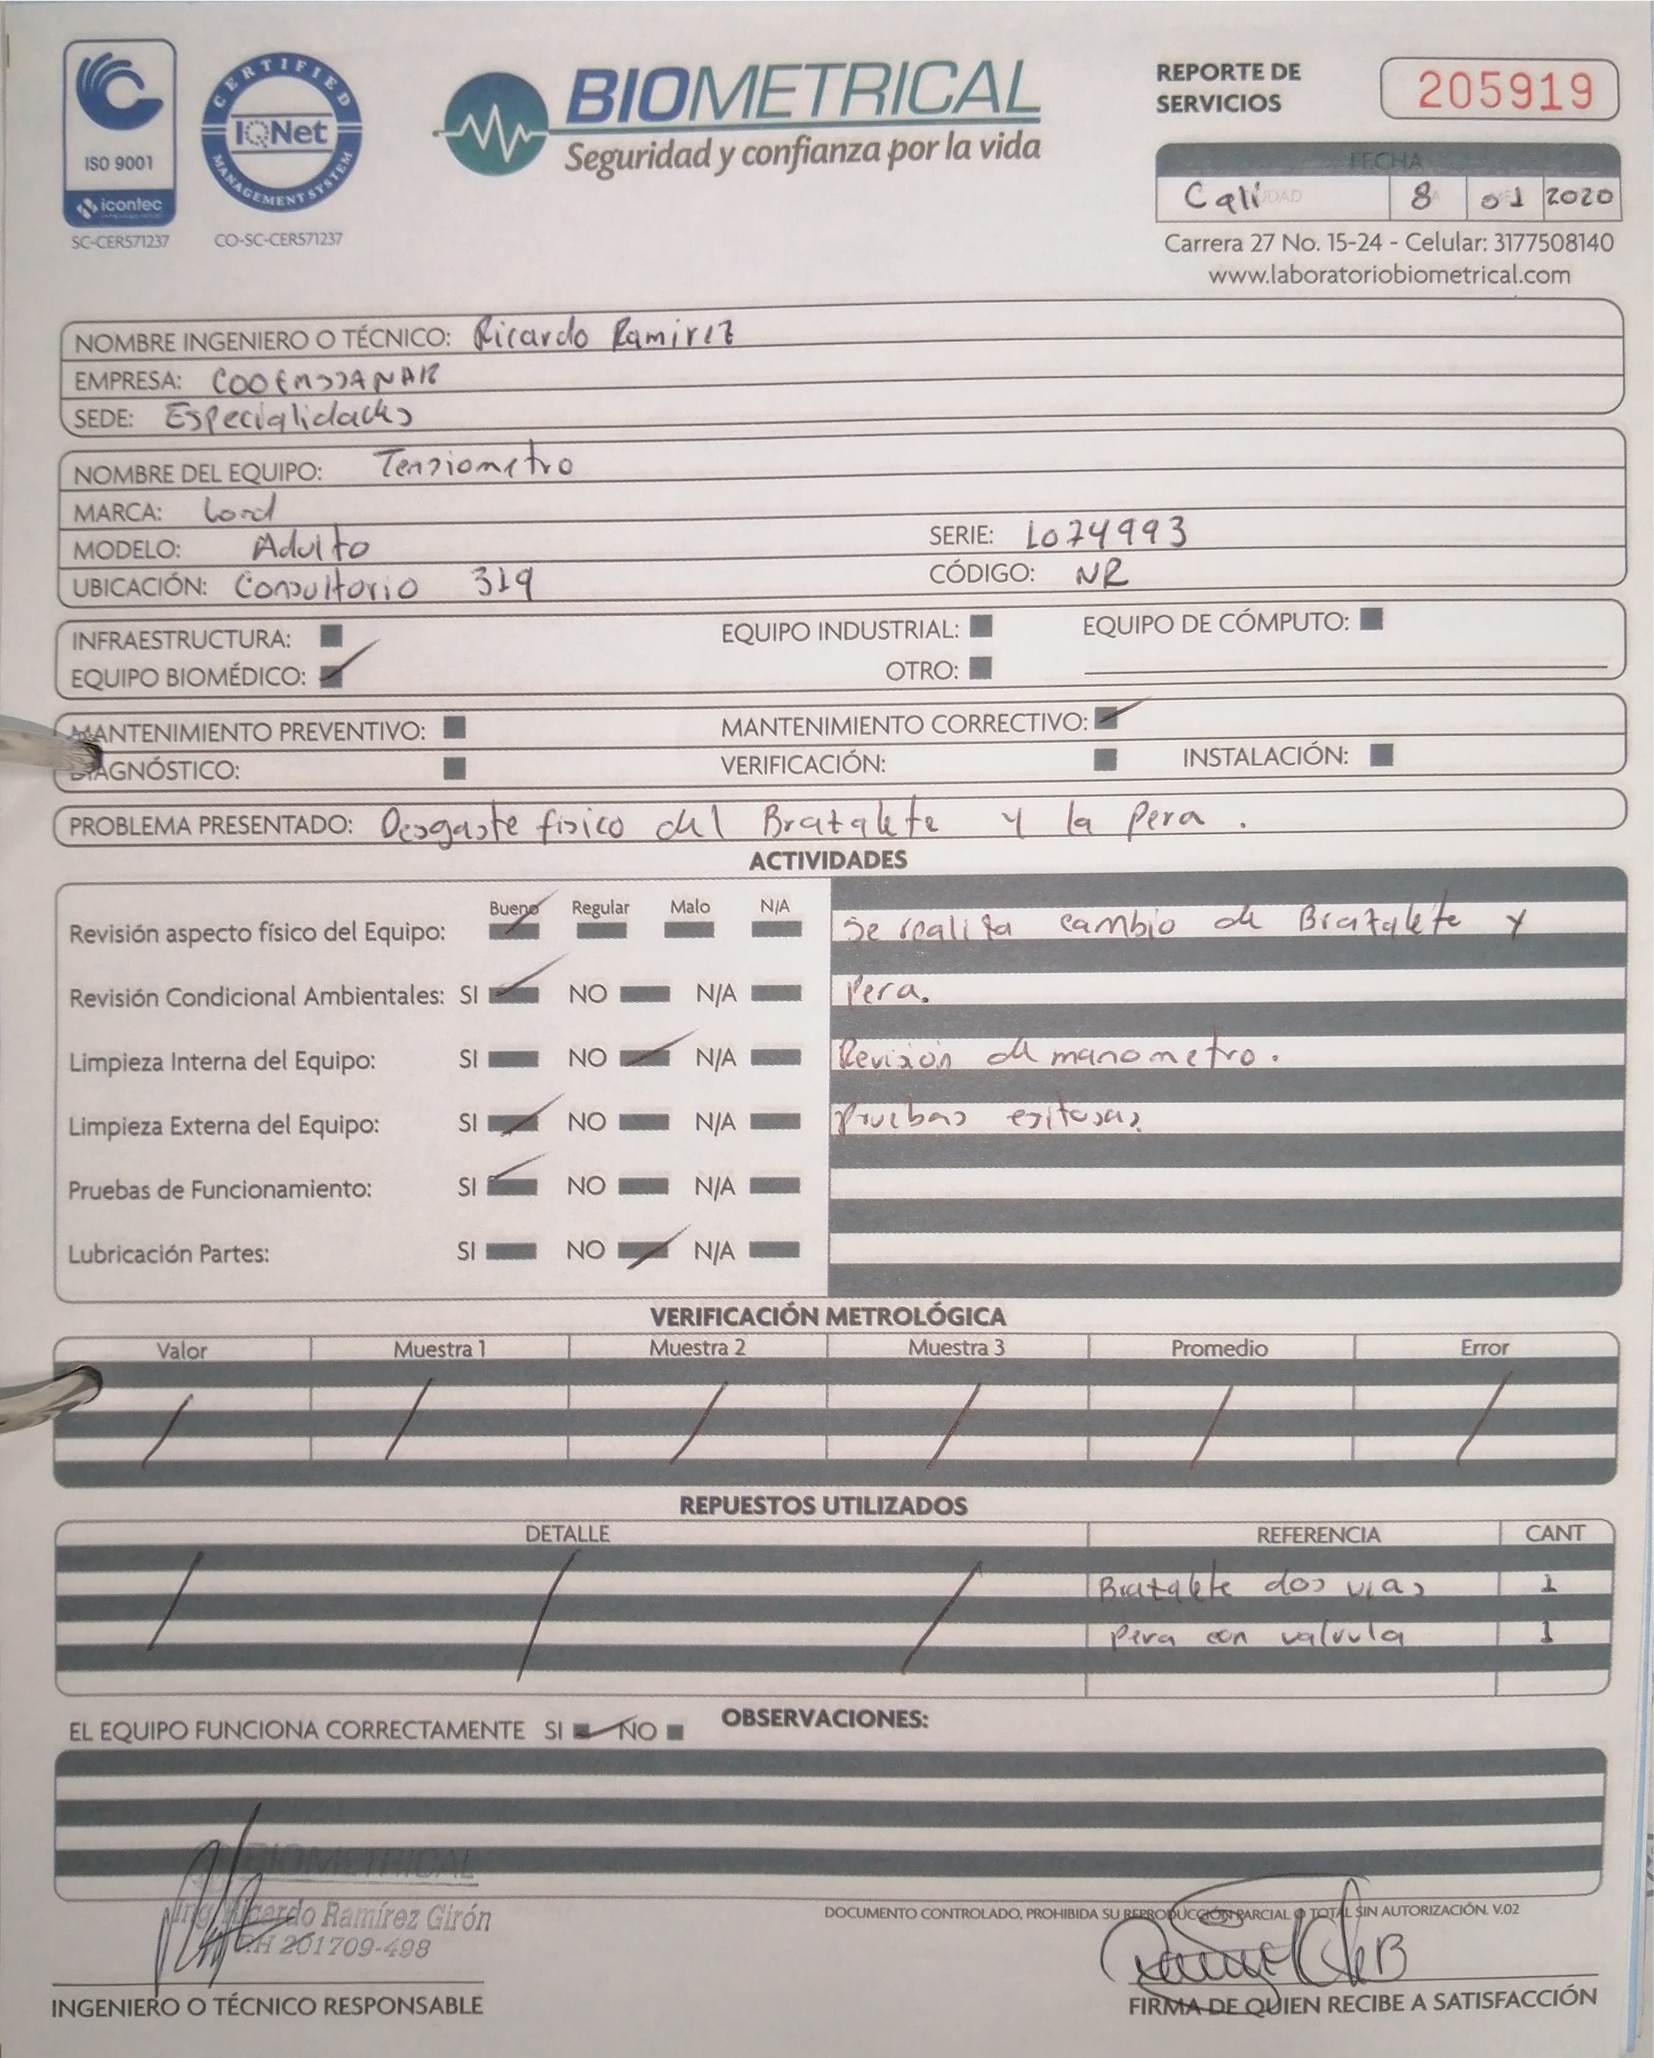 ISO 9001
icontec
SC-CER571237
CERTIFIED
IQNet
MANAGEMENT SYSTEM
CO-SC-CER571237
BIOMETRICAL
Seguridad y confianza por la vida
REPORTE DE
SERVICIOS
205919
FECHA
Cali 8 01 2020
Carrera 27 No. 15-24 - Celular: 3177508140
www.laboratoriobiometrical.com
NOMBRE INGENIERO O TÉCNICO: Ricardo Ramirez
EMPRESA: COOEMSSANAR
SEDE: Especialidades
NOMBRE DEL EQUIPO: Tensiometro
MARCA: Lord
MODELO: Adulto SERIE: L074993
UBICACIÓN: Consultorio 319 CÓDIGO: NR
INFRAESTRUCTURA: EQUIPO INDUSTRIAL: EQUIPO DE CÓMPUTO:
EQUIPO BIOMÉDICO: OTRO:
MANTENIMIENTO PREVENTIVO: MANTENIMIENTO CORRECTIVO:
DIAGNÓSTICO: VERIFICACIÓN: INSTALACIÓN:
PROBLEMA PRESENTADO: Desgaste fisico del Brazalete y la Pera.
ACTIVIDADES
Bueno Regular Malo N/A
Revisión aspecto físico del Equipo: Se realiza cambio de Brazalete y
Revisión Condicional Ambientales: SI NO N/A Pera.
Limpieza Interna del Equipo: SI NO N/A Revision de manometro.
Limpieza Externa del Equipo: SI NO N/A Pruebas exitosas
Pruebas de Funcionamiento: SI NO N/A
Lubricación Partes: SI NO N/A
VERIFICACIÓN METROLÓGICA
Valor Muestra 1 Muestra 2 Muestra 3 Promedio Error
REPUESTOS UTILIZADOS
DETALLE REFERENCIA CANT
Brazalete dos vias 1
Pera con valvula 1
EL EQUIPO FUNCIONA CORRECTAMENTE SI NO OBSERVACIONES:
BIOMETRICAL
Ing. Ricardo Ramírez Girón
RH 201709-498
DOCUMENTO CONTROLADO, PROHIBIDA SU REPRODUCCIÓN PARCIAL O TOTAL SIN AUTORIZACIÓN. V.02
INGENIERO O TÉCNICO RESPONSABLE
FIRMA DE QUIEN RECIBE A SATISFACCIÓN